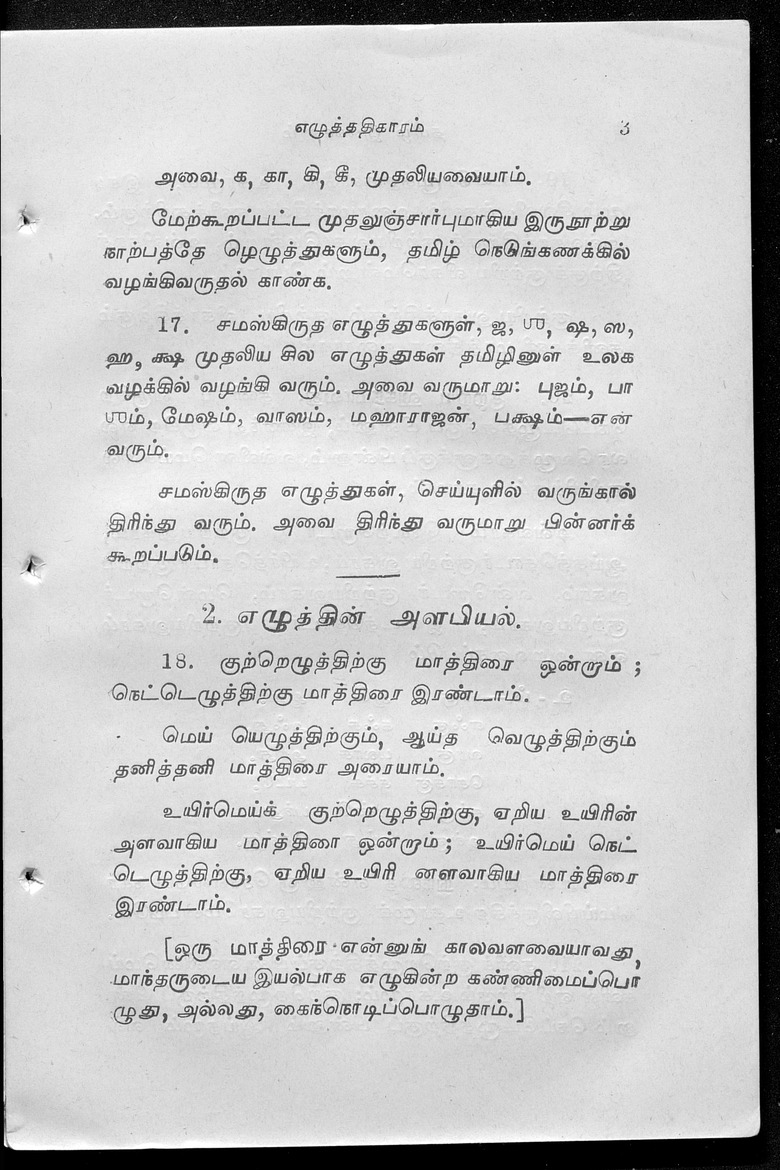 எழுத்ததிகாரம் 3
அவை, க, கா, கி, கீ, முதலியவையாம்.
மேற்கூறப்பட்ட முதலுஞ்சார்புமாகிய இருநூற்று
நாற்பத்தே ழெழுத்துகளும், தமிழ் நெடுங்கணக்கில்
வழங்கிவருதல் காண்க.
17. சமஸ்கிருத எழுத்துகளுள், ஜ, ஶ, ஷ, ஸ,
ஹ, க்ஷ முதலிய சில எழுத்துகள் தமிழினுள் உலக
வழக்கில் வழங்கி வரும். அவை வருமாறு: புஜம், பா
ஶம், மேஷம், வாஸம், மஹாராஜன், பக்ஷம்—என
வரும்.
சமஸ்கிருத எழுத்துகள், செய்யுளில் வருங்கால்
திரிந்து வரும். அவை திரிந்து வருமாறு பின்னர்க்
கூறப்படும்.
2. எழுத்தின் அளபியல்.
18. குற்றெழுத்திற்கு மாத்திரை ஒன்றாம் ;
நெட்டெழுத்திற்கு மாத்திரை இரண்டாம்.
மெய் யெழுத்திற்கும், ஆய்த வெழுத்திற்கும்
தனித்தனி மாத்திரை அரையாம்.
உயிர்மெய்க் குற்றெழுத்திற்கு, ஏறிய உயிரின்
அளவாகிய மாத்திரை ஒன்றாம் ; உயிர்மெய் நெட்
டெழுத்திற்கு, ஏறிய உயிரி னளவாகிய மாத்திரை
இரண்டாம்.
[ஒரு மாத்திரை என்னுங் காலவளவையாவது,
மாந்தருடைய இயல்பாக எழுகின்ற கண்ணிமைப்பொ
ழுது, அல்லது, கைந்நொடிப்பொழுதாம்.]